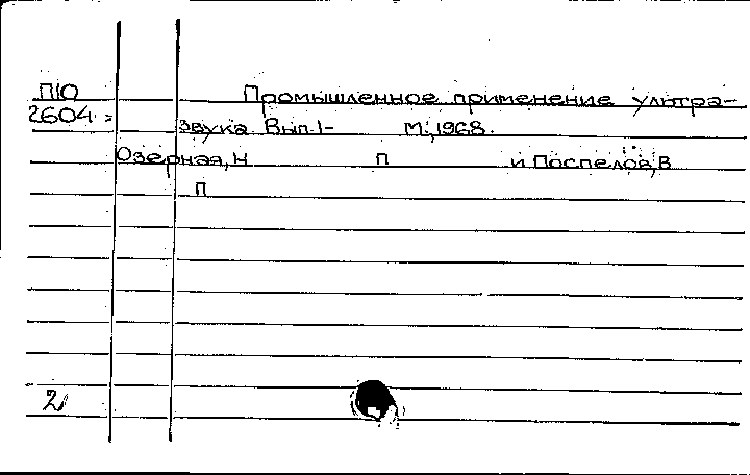 П10
2604
Промышленное применение ультра-
звука. Вып. 1- М., 1968.
Озерная, Н П и Поспелов, В
П
2